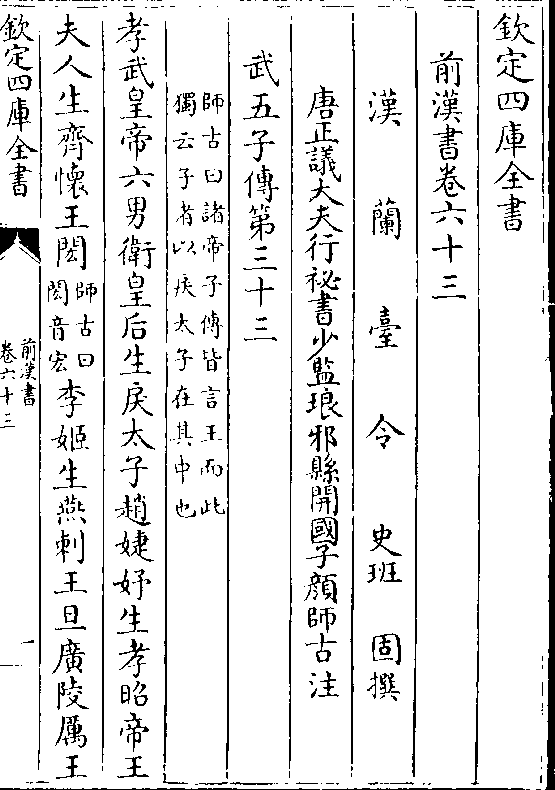 欽定四庫全書
前漢書卷六十三
漢蘭臺令史班固撰
唐正議大夫行祕書少監琅邪縣開國子顔師古注
武五子傳第三十三
師古曰諸帝子傳皆言王而此
獨云子者以戾太子在其中也
孝武皇帝六男衛皇后生戾太子趙婕妤生孝昭帝王
夫人生齊懷王閎師古曰閎音宏李姬生燕刺王旦廣陵厲王
欽定四庫全書
前漢書
卷六十三
一